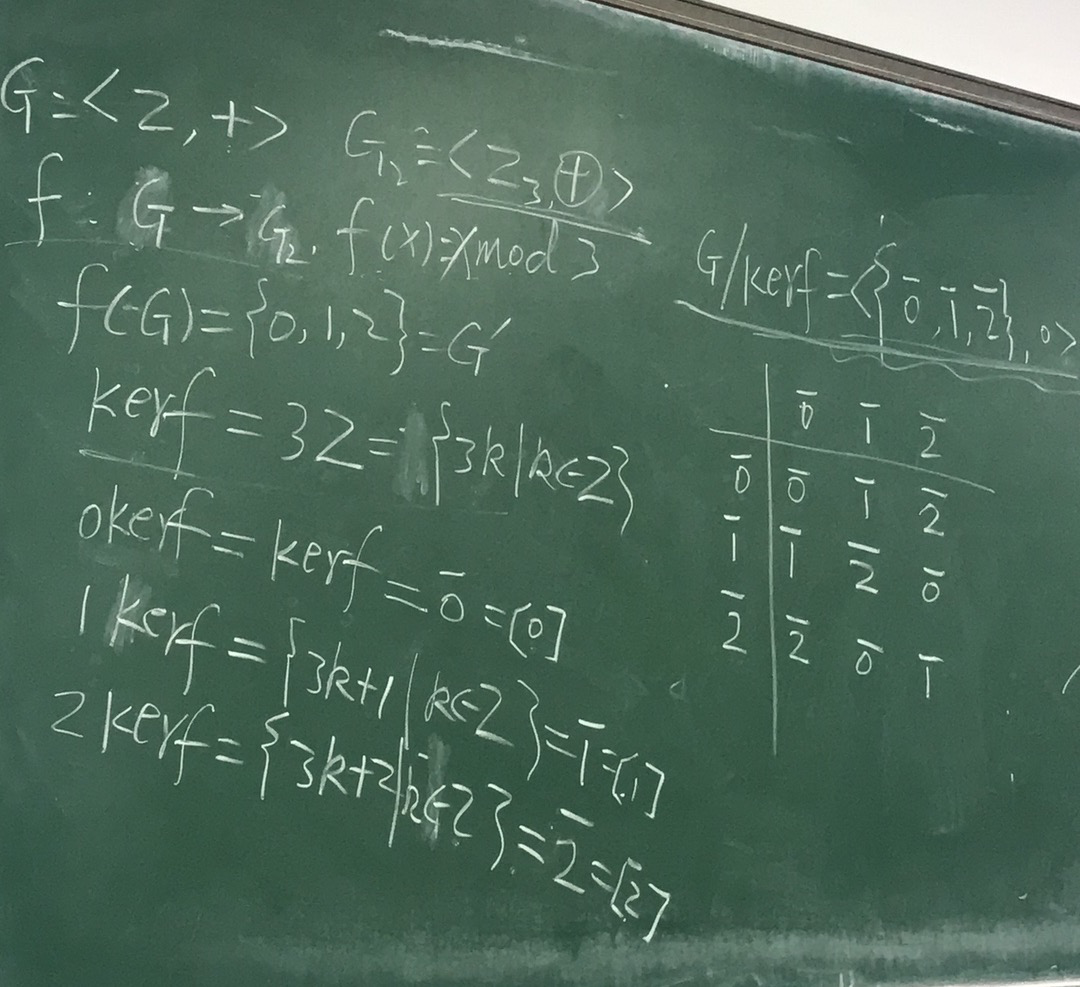 G=<Z,+> G₂=<Z₃,⊕>
f: G→G₂, f(x)=x mod 3
f(G)={0,1,2}=G′
kerf=3Z={3k|k∈Z}
0kerf=kerf=0̄=[0]
1kerf={3k+1|k∈Z}=1̄=[1]
2kerf={3k+2|k∈Z}=2̄=[2]
G/kerf=<{0̄,1̄,2̄},o>
0̄ 1̄ 2̄
0̄ 0̄ 1̄ 2̄
1̄ 1̄ 2̄ 0̄
2̄ 2̄ 0̄ 1̄